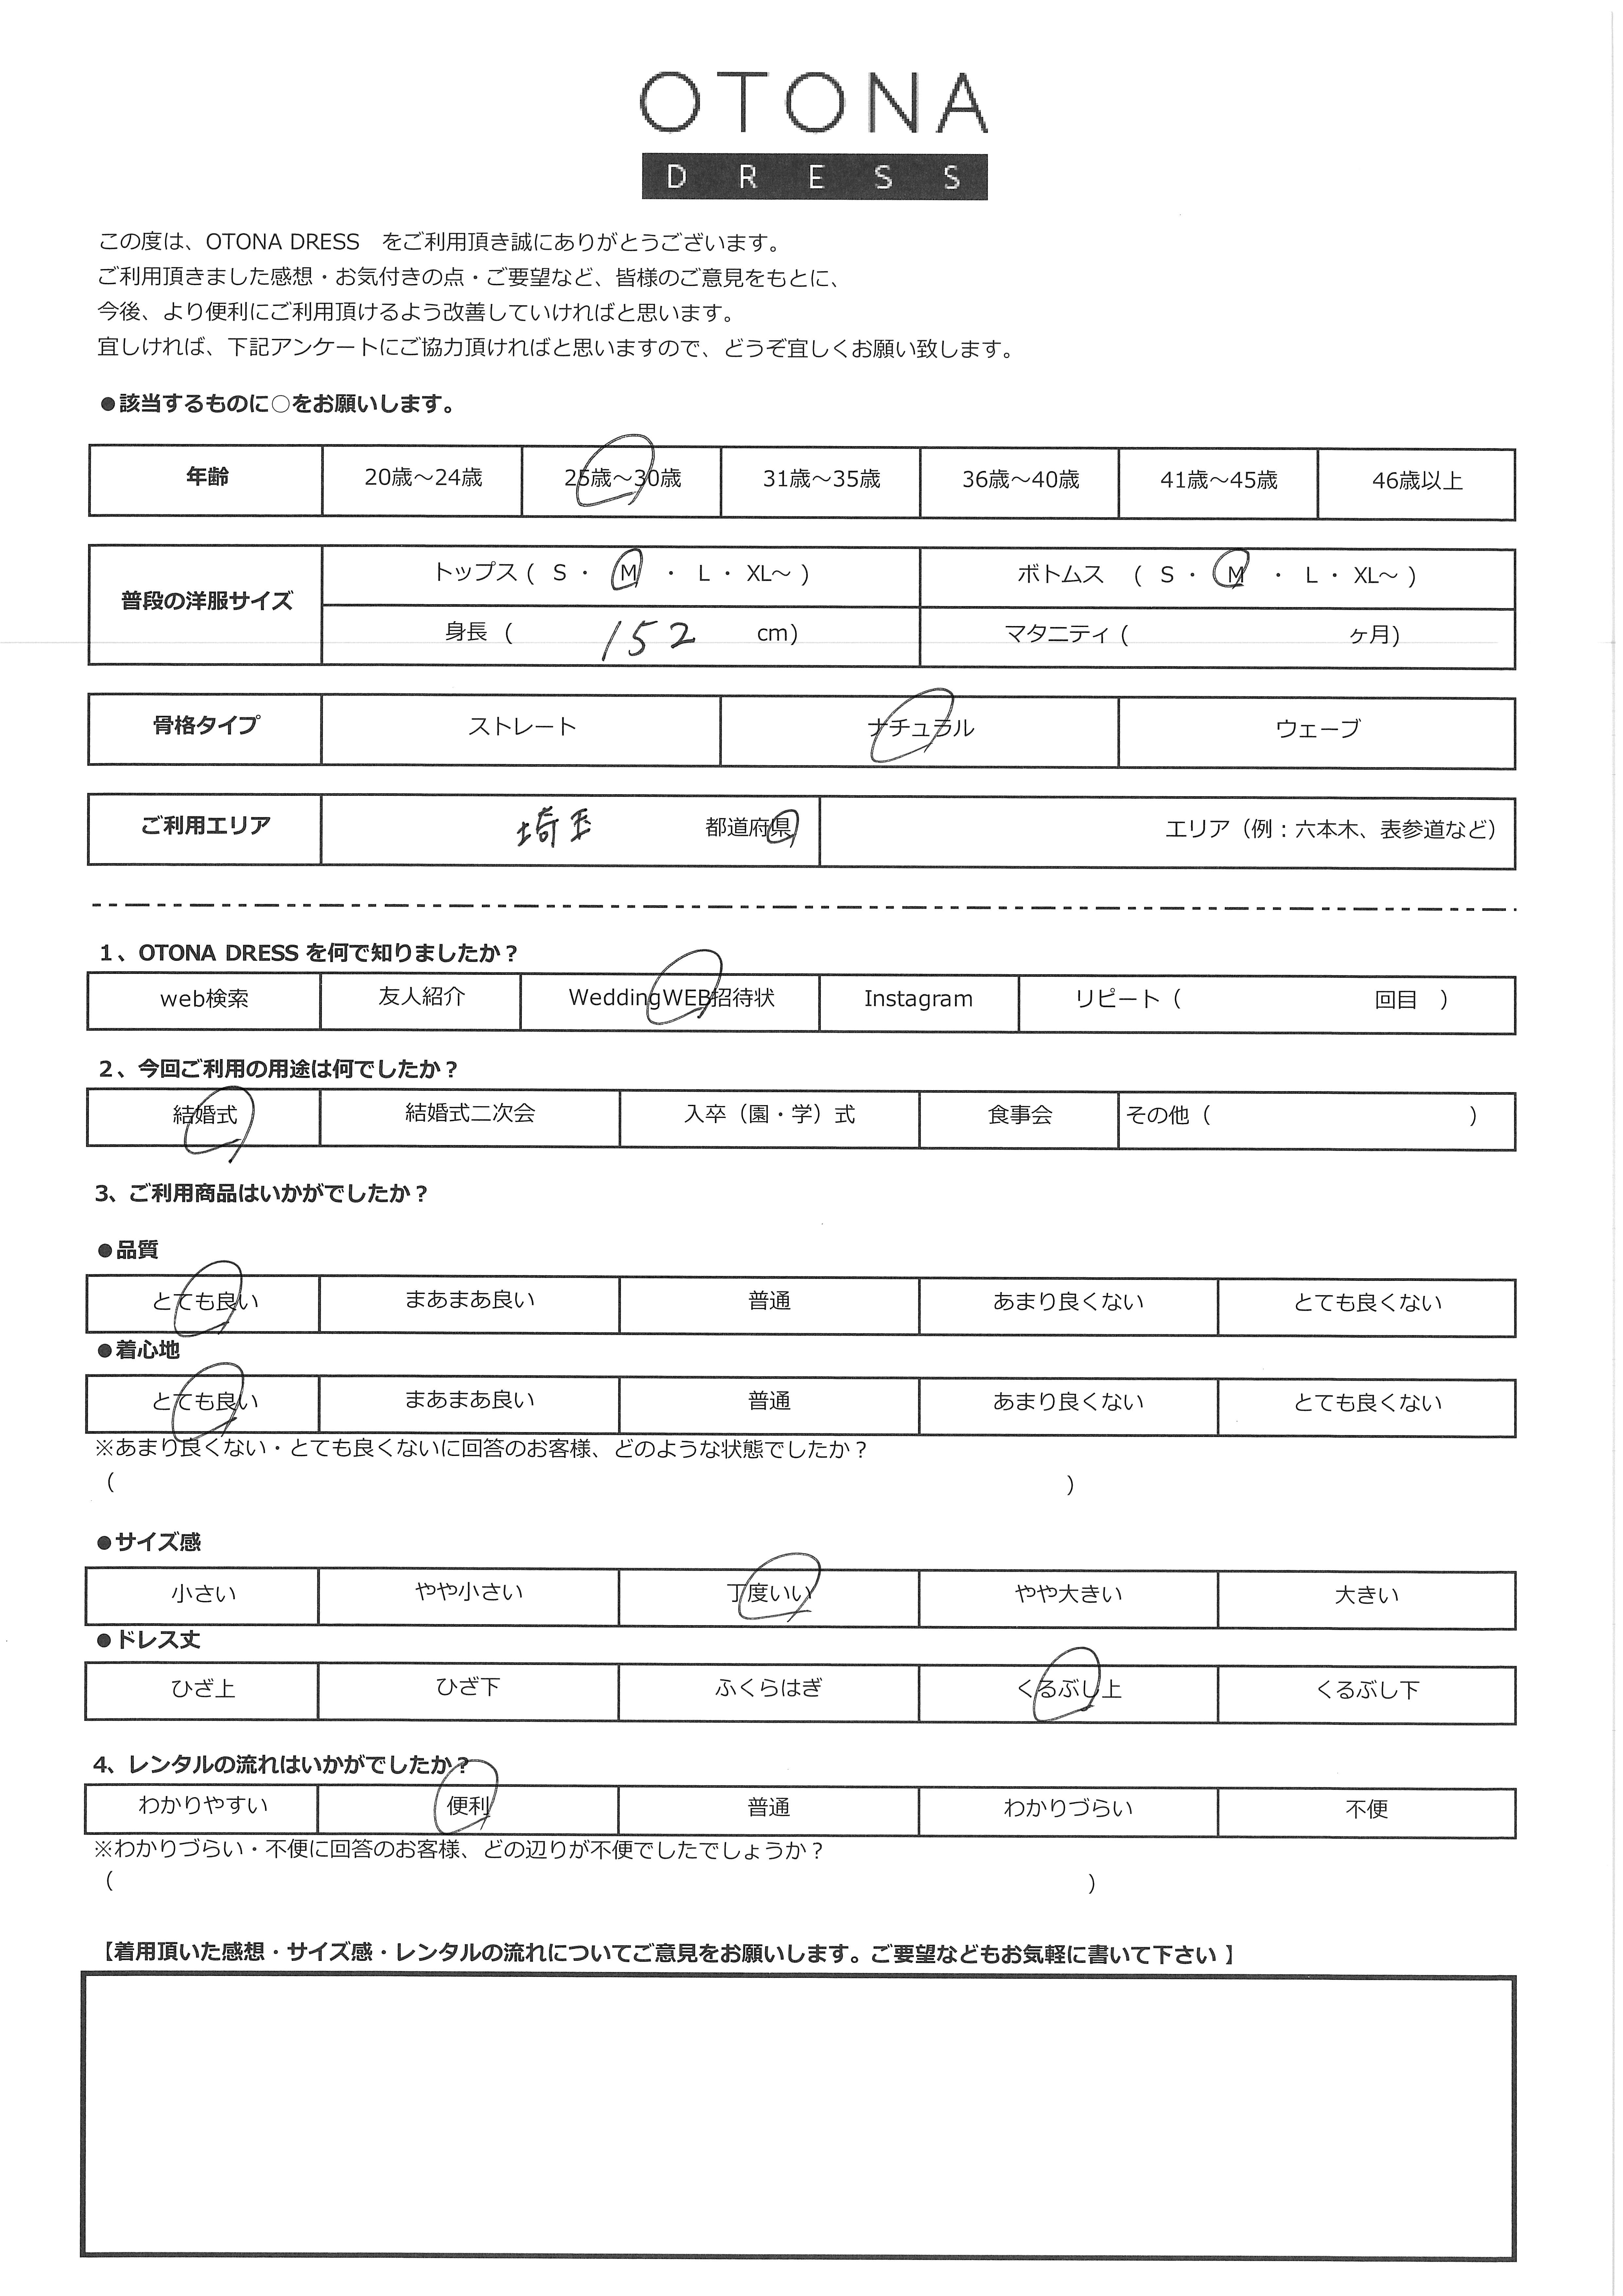 OTONA
DRESS
この度は、OTONA DRESS　をご利用頂き誠にありがとうございます。
ご利用頂きました感想・お気付きの点・ご要望など、皆様のご意見をもとに、
今後、より便利にご利用頂けるよう改善していければと思います。
宜しければ、下記アンケートにご協力頂ければと思いますので、どうぞ宜しくお願い致します。
●該当するものに○をお願いします。
年齢 20歳～24歳 25歳～30歳 31歳～35歳 36歳～40歳 41歳～45歳 46歳以上
普段の洋服サイズ トップス ( S ・ M ・ L ・ XL～ ) ボトムス ( S ・ M ・ L ・ XL～ )
身長 ( 152 cm) マタニティ ( ヶ月)
骨格タイプ ストレート ナチュラル ウェーブ
ご利用エリア 埼玉 都道府県 エリア（例：六本木、表参道など）
1、OTONA DRESS を何で知りましたか？
web検索 友人紹介 WeddingWEB招待状 Instagram リピート（ 回目 ）
2、今回ご利用の用途は何でしたか？
結婚式 結婚式二次会 入卒（園・学）式 食事会 その他（ ）
3、ご利用商品はいかがでしたか？
●品質
とても良い まあまあ良い 普通 あまり良くない とても良くない
●着心地
とても良い まあまあ良い 普通 あまり良くない とても良くない
※あまり良くない・とても良くないに回答のお客様、どのような状態でしたか？
（ ）
●サイズ感
小さい やや小さい 丁度いい やや大きい 大きい
●ドレス丈
ひざ上 ひざ下 ふくらはぎ くるぶし上 くるぶし下
4、レンタルの流れはいかがでしたか？
わかりやすい 便利 普通 わかりづらい 不便
※わかりづらい・不便に回答のお客様、どの辺りが不便でしたでしょうか？
（ ）
【着用頂いた感想・サイズ感・レンタルの流れについてご意見をお願いします。ご要望などもお気軽に書いて下さい 】